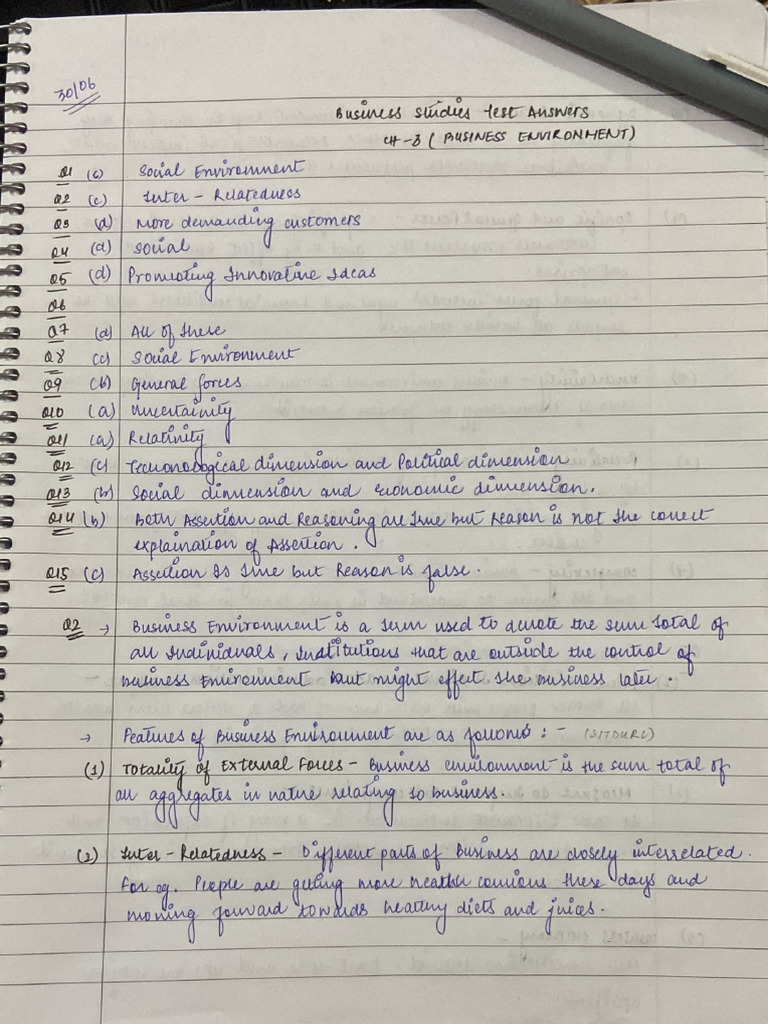 30/06
Business Studies Test Answers
CH-3 ( BUSINESS ENVIRONMENT)
Q1 (c) Social Environment
Q2 (c) Inter - Relatedness
Q3 (d) More demanding customers
Q4 (d) Social
Q5 (d) Promoting Innovative Ideas
Q6
Q7 (d) All of these
Q8 (c) Social Environment
Q9 (b) General forces
Q10 (a) Uncertainity
Q11 (a) Relativity
Q12 (c) Tecnonological dimension and Political dimension
Q13 (b) Social dimension and Economic dimension.
Q14 (b) Both Assertion and Reasoning are true but Reason is not the correct
explaination of Assertion.
Q15 (c) Assertion is true but Reason is false.
Q2 → Business Environment is a term used to denote the sum total of
all Individuals, Institutions that are outside the control of
business Environment but might effect the business later.
→ Features of Business Environment are as follows : - (SITDURC)
(1) Totality of External Forces - Business environment is the sum total of
all aggregates in nature relating to business.
(2) Inter - Relatedness - Different parts of Business are closely interrelated.
For eg. People are getting more health consious these days and
moving forward towards healthy diets and juices.